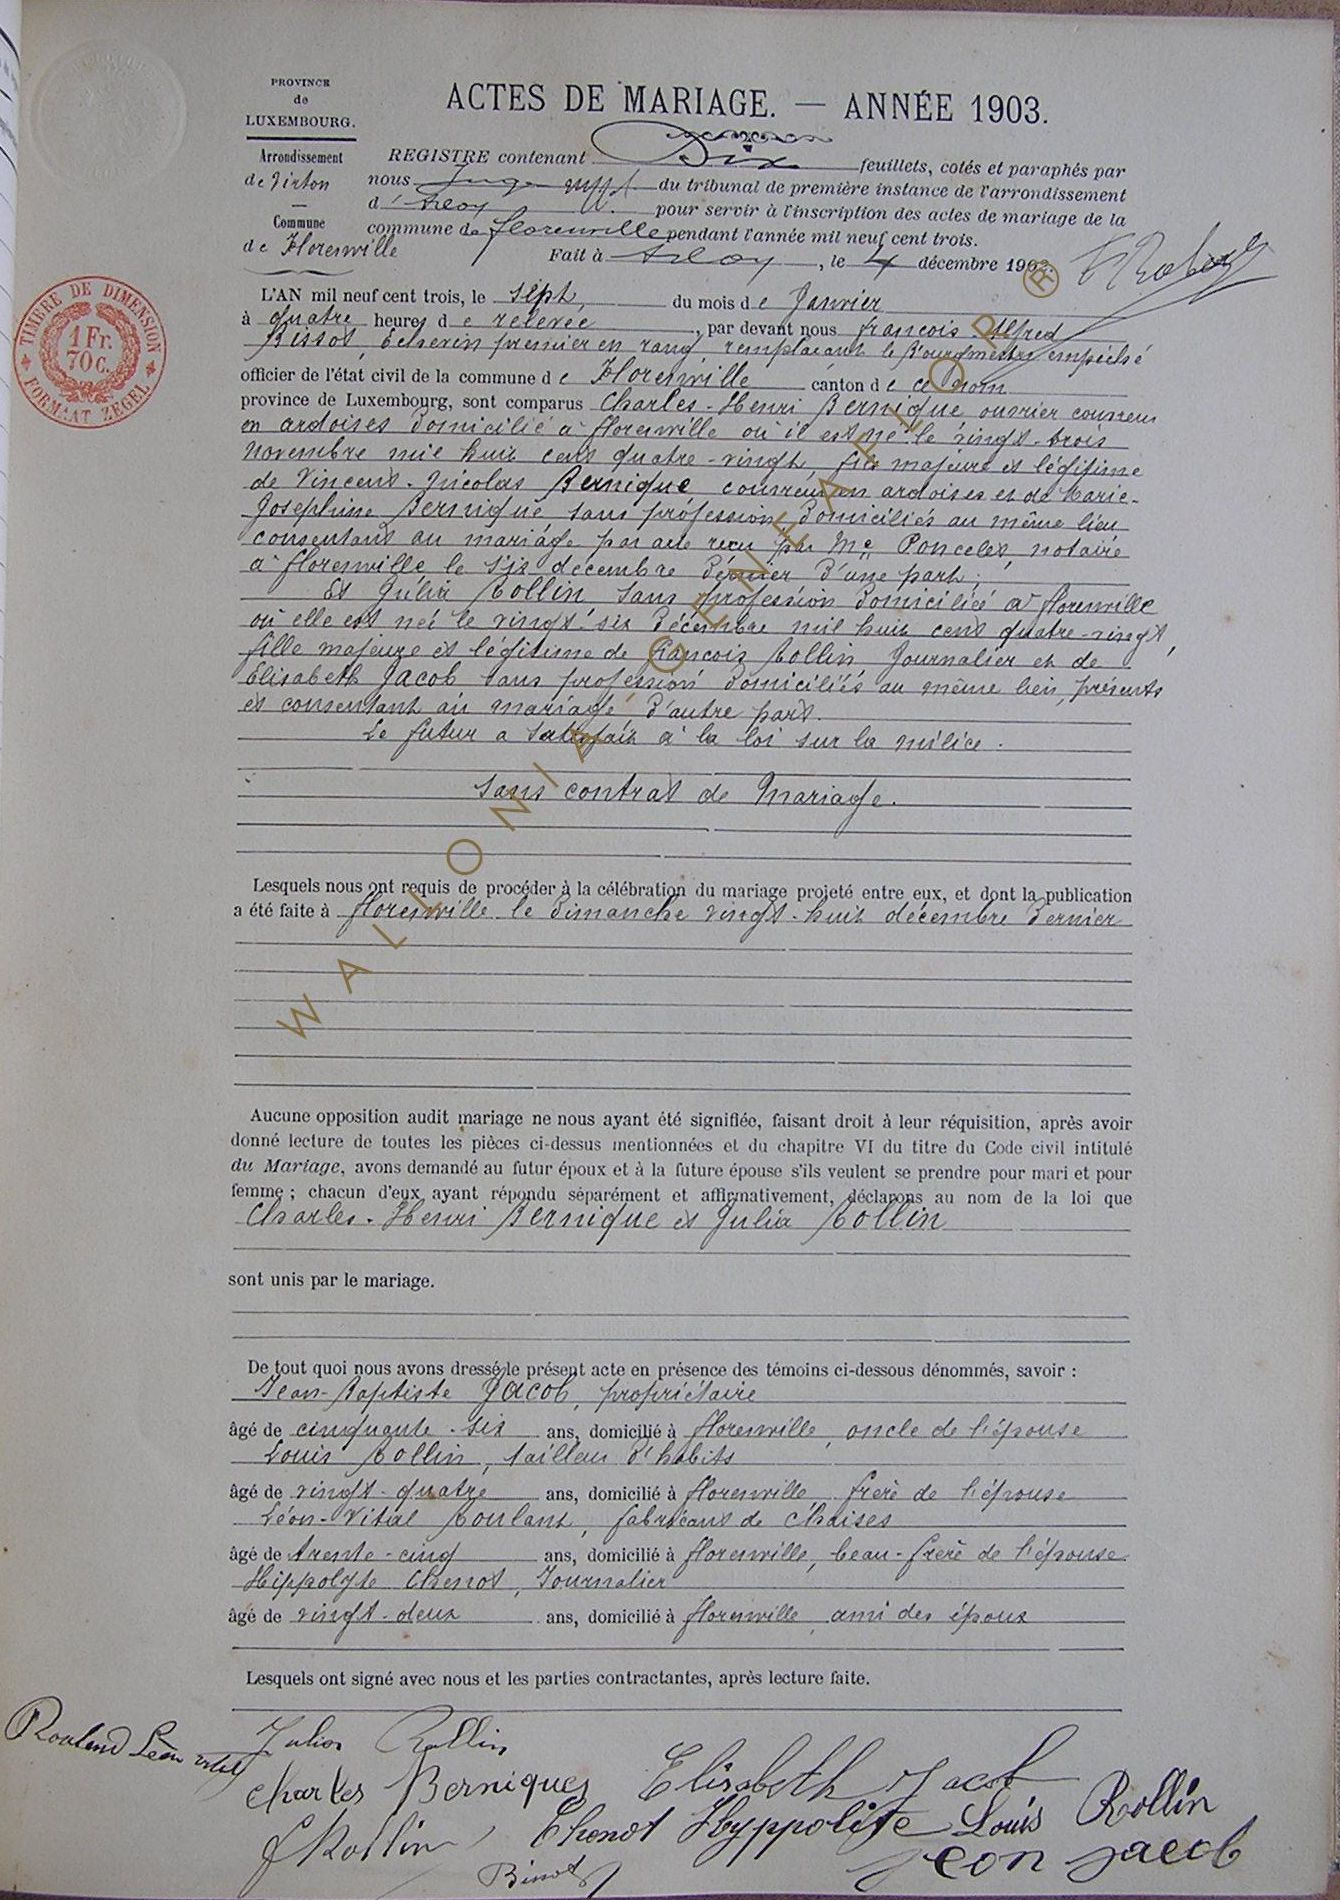 PROVINCE
de
LUXEMBOURG.
Arrondissement
de Virton
Commune
de Florenville
TIMBRE DE DIMENSION
1 Fr.
70 c.
FORMAAT ZEGEL
ACTES DE MARIAGE. — ANNÉE 1903.
REGISTRE contenant Dix feuillets, cotés et paraphés par
nous Juge du tribunal de première instance de l'arrondissement
d'Arlon pour servir à l'inscription des actes de mariage de la
commune de Florenville pendant l'année mil neuf cent trois.
Fait à Arlon, le 4 décembre 1902.
L'AN mil neuf cent trois, le sept, du mois de Janvier
à quatre heures de relevée, par devant nous françois-Alfred
Bissot, Echevin premier en rang, remplaçant le Bourgmestre empêché
officier de l'état civil de la commune de Florenville canton de ce nom
province de Luxembourg, sont comparus Charles-Henri Bernique ouvrier couvreur
en ardoises Domicilié à florenville où il est né le vingt-trois
novembre mil huit cent quatre-vingt, fils majeure et légitime
de Vincent-Nicolas Bernique couvreur en ardoises et de Marie-
Josephine Bernique sans profession, Domiciliés au même lieu
consentant au mariage par acte reçu par Me Poncelet, notaire
à florenville le six décembre Dernier D'une part;
Et Julia Rollin sans profession Domiciliée à florenville
où elle est née le vingt-six Décembre mil huit cent quatre-vingt,
fille majeure et légitime de François Rollin Journalier et de
Elisabeth Jacob sans profession Domiciliés au même lieu, présents
et consentant au mariage D'autre part.
Le futur a satisfait à la loi sur la milice.
Sans contrat de Mariage.
Lesquels nous ont requis de procéder à la célébration du mariage projeté entre eux, et dont la publication
a été faite à florenville le Dimanche vingt-huit décembre Dernier
Aucune opposition audit mariage ne nous ayant été signifiée, faisant droit à leur réquisition, après avoir
donné lecture de toutes les pièces ci-dessus mentionnées et du chapitre VI du titre du Code civil intitulé
du Mariage, avons demandé au futur époux et à la future épouse s'ils veulent se prendre pour mari et pour
femme ; chacun d'eux ayant répondu séparément et affirmativement, déclarons au nom de la loi que
Charles-Henri Bernique et Julia Rollin
sont unis par le mariage.
De tout quoi nous avons dressé le présent acte en présence des témoins ci-dessous dénommés, savoir :
Jean-Baptiste Jacob, propriétaire
âgé de cinquante-six ans, domicilié à florenville, oncle de l'épouse
Louis Rollin, tailleur d'habits
âgé de vingt-quatre ans, domicilié à florenville, frère de l'épouse
Léon-Vital Roulant, fabricant de chaises
âgé de trente-cinq ans, domicilié à florenville, beau-frère de l'épouse
Hippolyte Thenot, Journalier
âgé de vingt-deux ans, domicilié à florenville, ami des époux
Lesquels ont signé avec nous et les parties contractantes, après lecture faite.
Roulend Léon vital
Julia Rollin
Charles Berniques
Elisabeth Jacob
F Rollin
Thenot Hyppolite
Louis Rollin
Jean Jacob
Bissot
WALLONIA GENEAFLOR ®